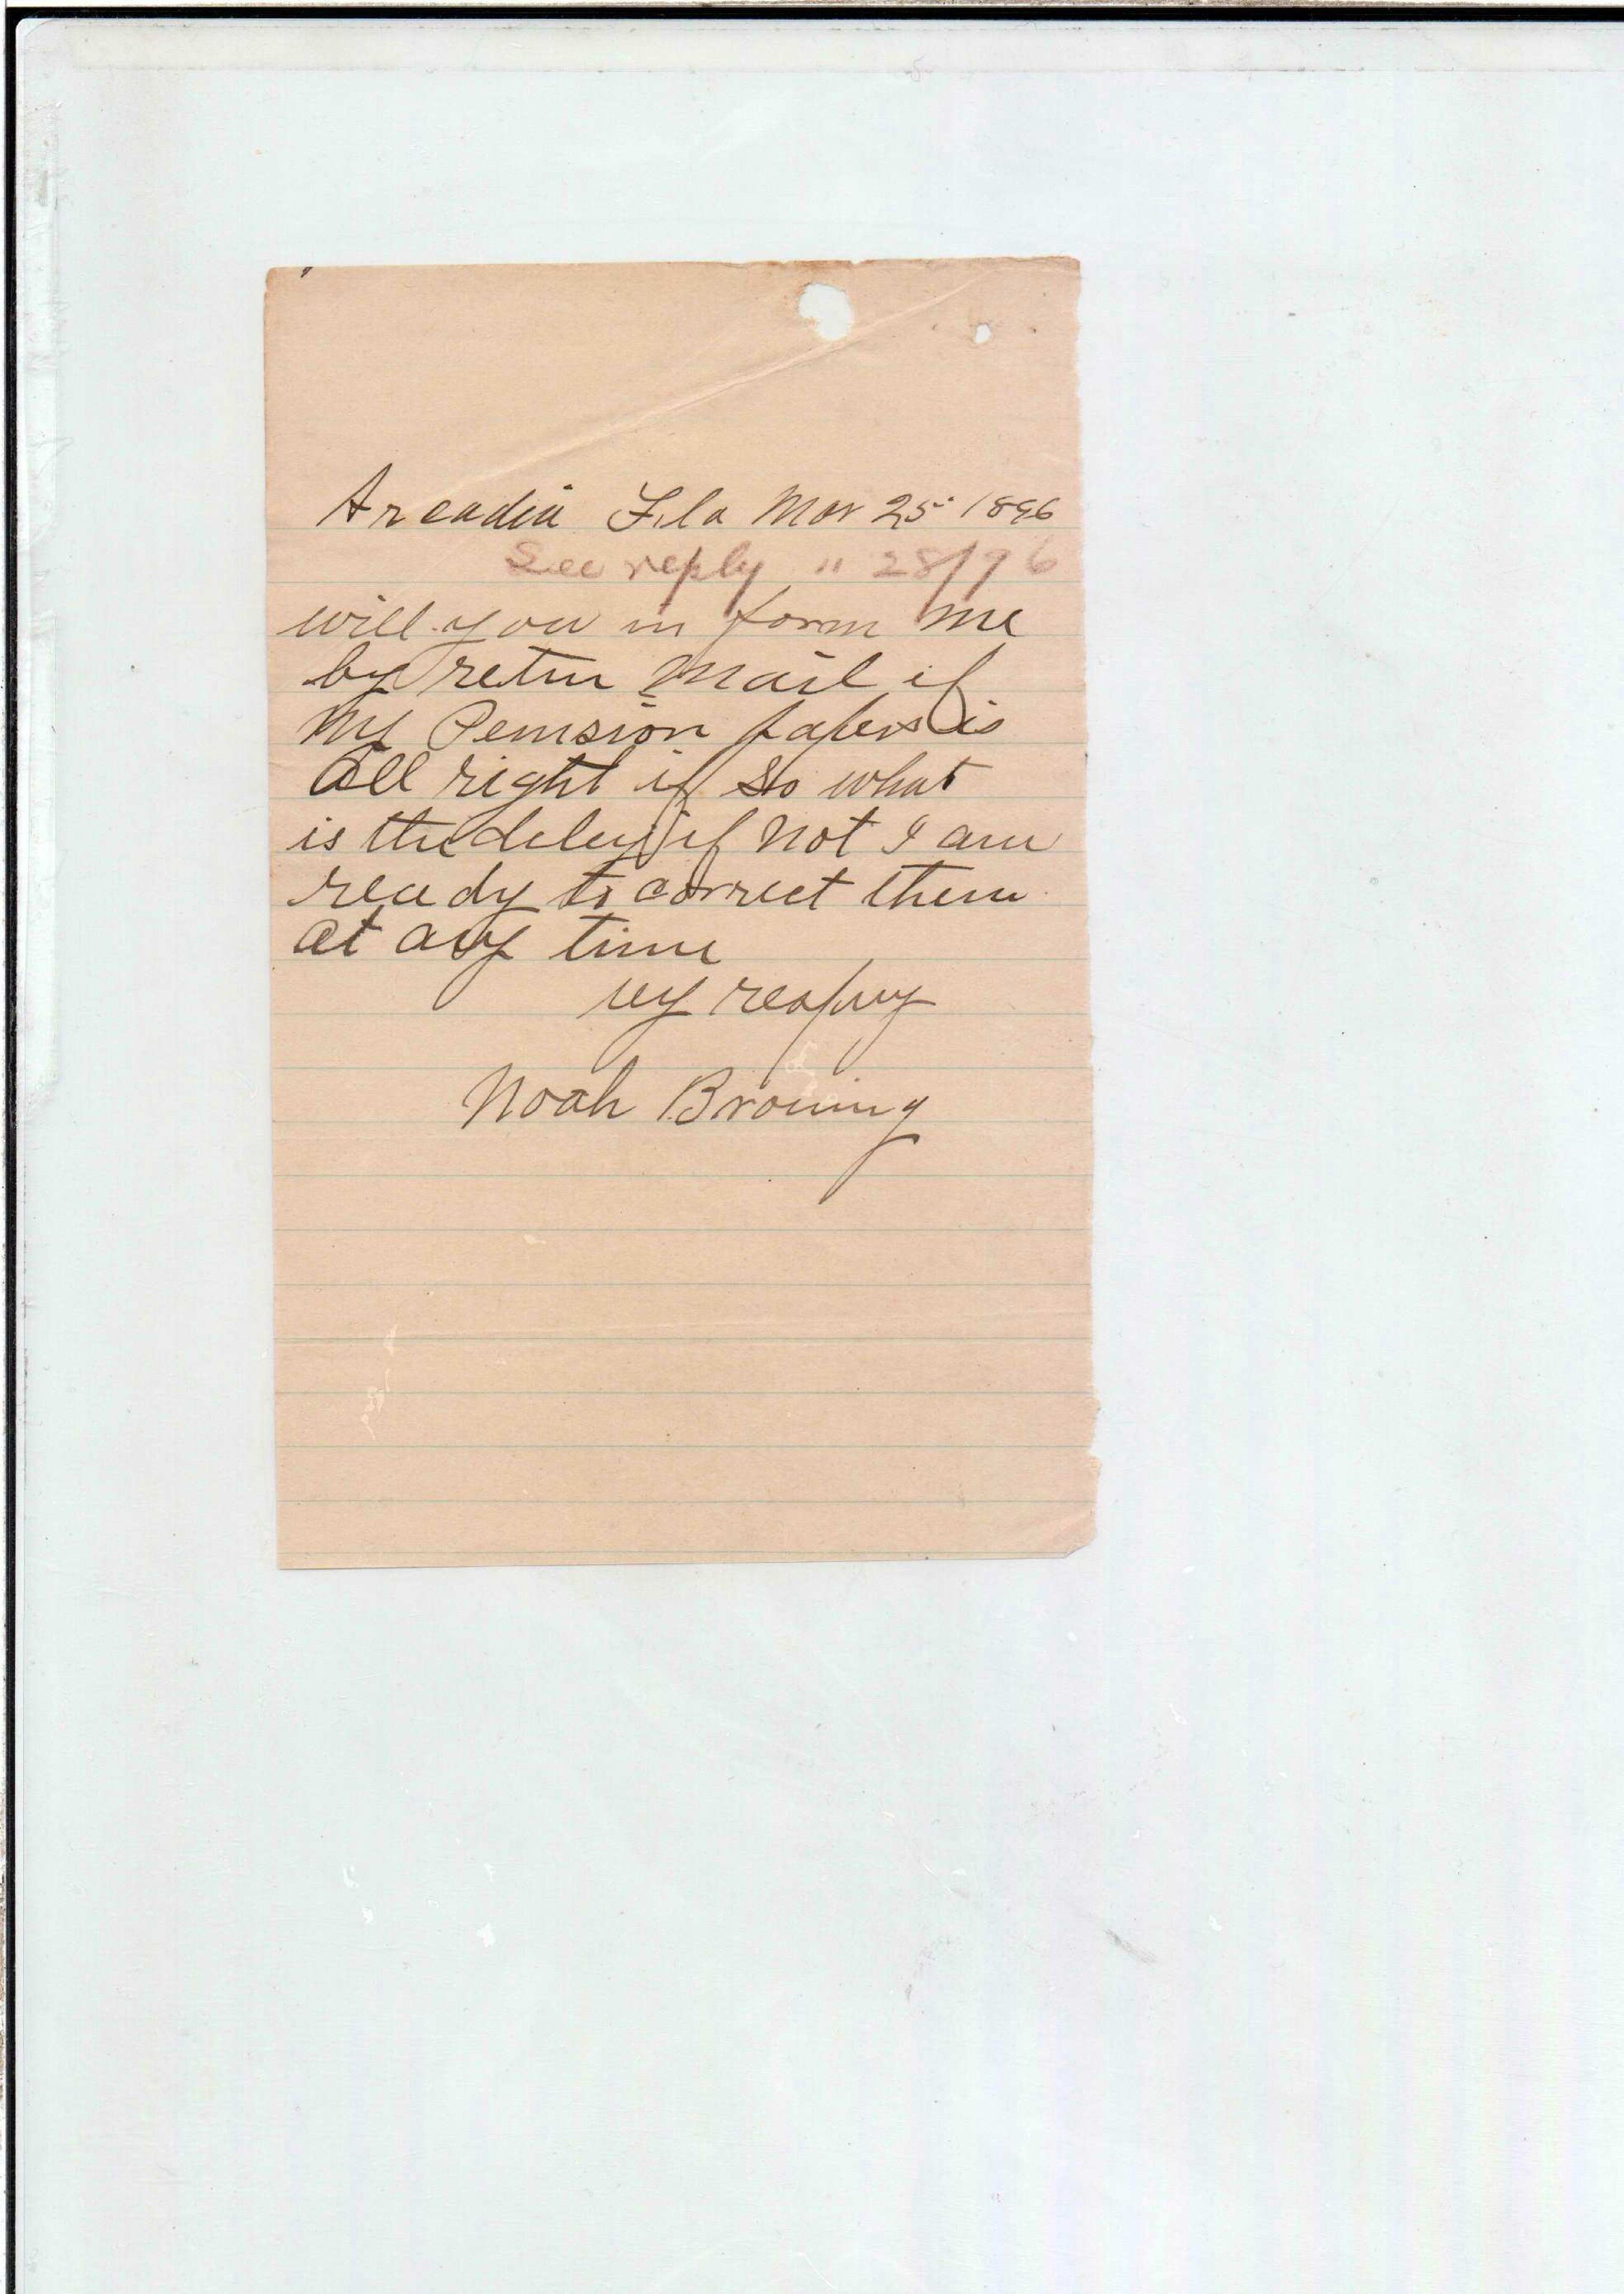 Arcadia Fla Mar 25 1896
See reply " 28/96
will you in form me
by retur mail if
my Pension papers is
all right if so what
is the deley if not I am
ready to correct them
at any time
vy
Noah Browing